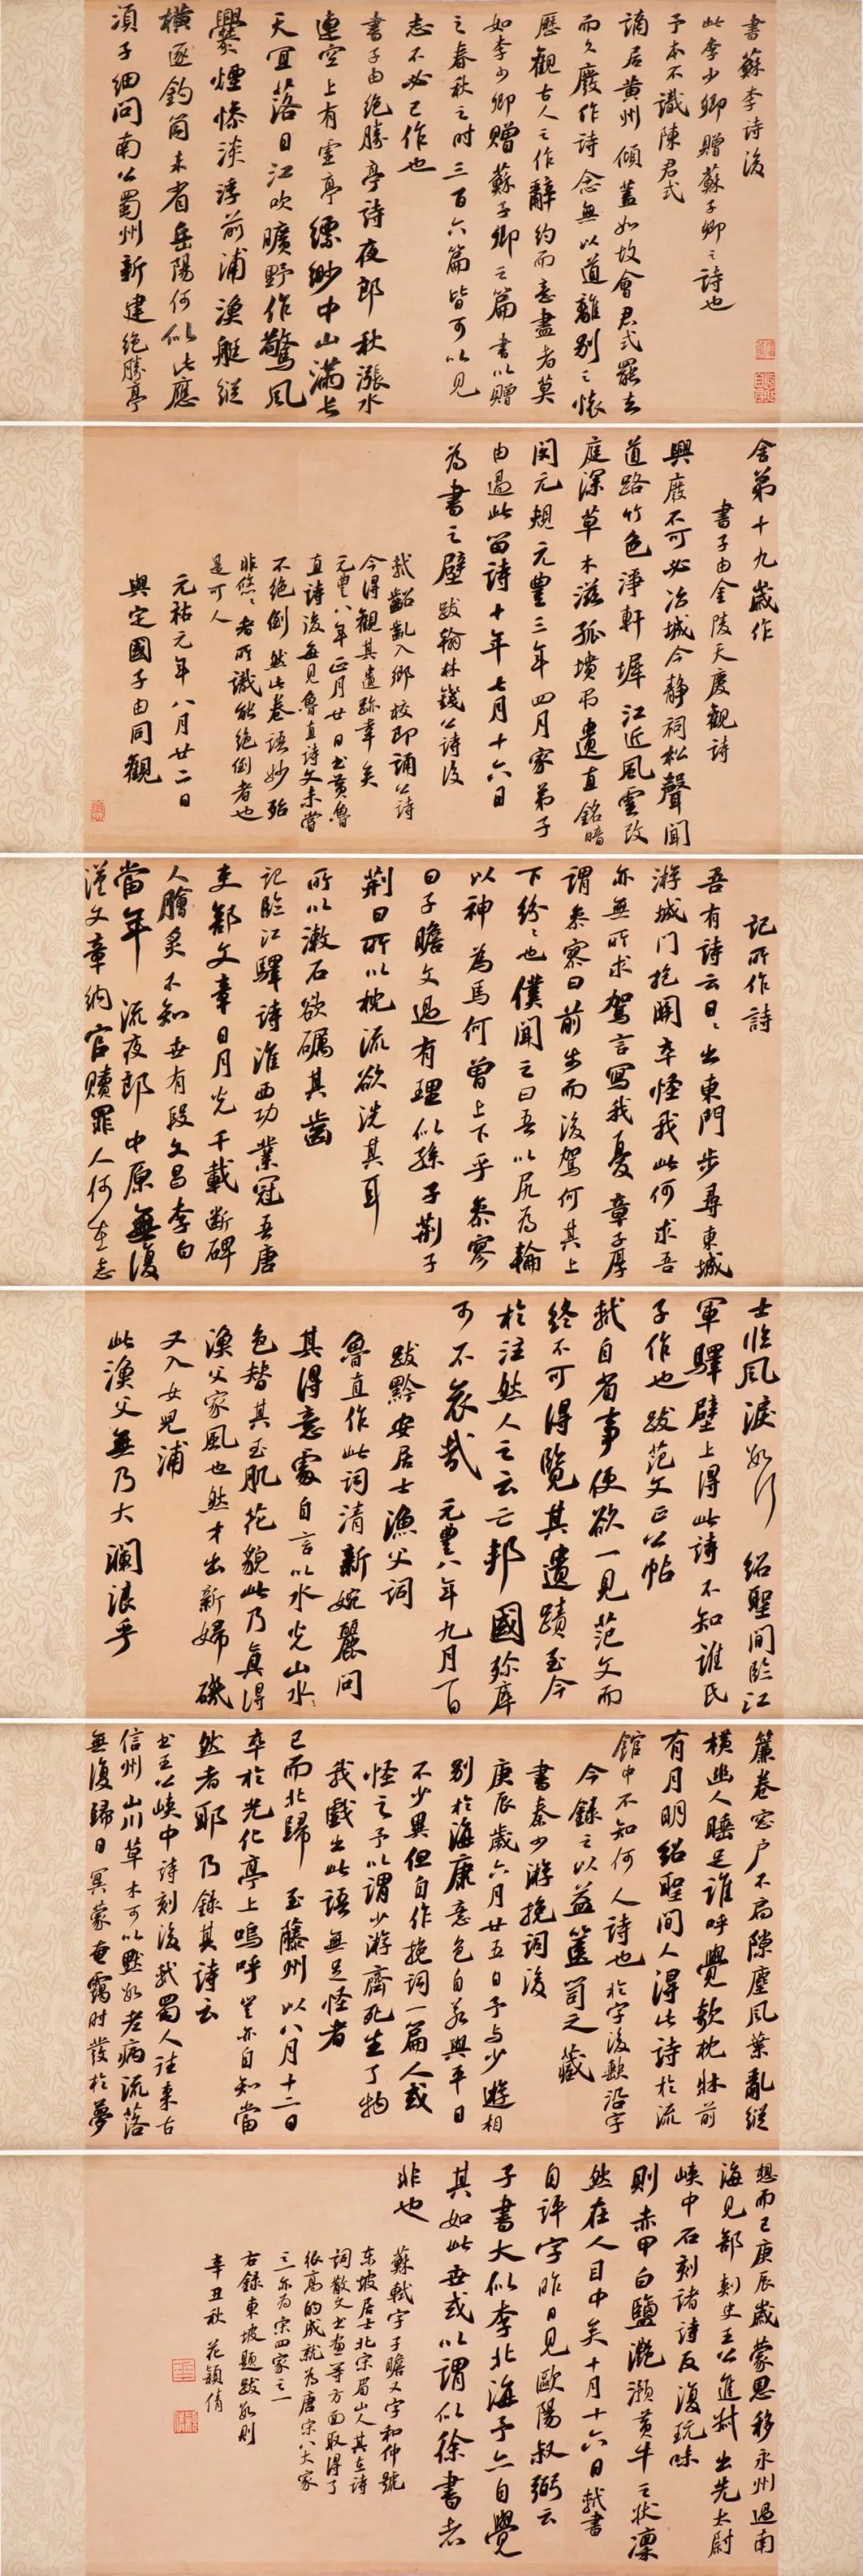 書蘇李詩後
此李少卿贈蘇子卿之詩也
予本不識陳君式
謫居黃州傾蓋如故會君式罷去
而久廢作詩念無以道離別之懷
歷觀古人之作辭約而意盡者莫
如李少卿贈蘇子卿之篇書以贈
之春秋之時三百六篇皆可以見
志不必己作也
書子由絕勝亭詩夜郎秋漲水
連空上有虛亭縹緲中山滿長
天宜落日江吹曠野作驚風
爨煙慘淡浮前浦漁艇縱
橫逐釣筒未省岳陽何似此應
須子細問南公蜀州新建絕勝亭
舍弟十九歲作
書子由金陵天慶觀詩
興廢不可必冶城今靜祠松聲聞
道路竹色淨軒墀江近風雲改
庭深草木滋孤墳弔遺直銘暗
閔元規元豐三年四月家弟子
由過此留詩十年七月十六日
為書之壁跋翰林錢公詩後
軾齠齔入鄉校即誦公詩
今得觀其遺跡幸矣
元豐八年正月廿日書黃魯
直詩後每見魯直詩文未嘗
不絕倒然此卷語妙殆
非悠悠者所識能絕倒者也
是可人
元祐元年八月廿二日
與定國子由同觀
記所作詩
吾有詩云日日出東門步尋東城
游城門抱關卒怪我此何求吾
亦無所求駕言寫我憂章子厚
謂參寥曰前步而後駕何其上
下紛紛也僕聞之曰吾以尻為輪
以神為馬何曾上下乎參寥
曰子瞻文過有理似孫子荊子
荊曰所以枕流欲洗其耳
所以漱石欲礪其齒
記臨江驛詩淮西功業冠吾唐
吏部文章日月光千載斷碑
人膾炙不知世有段文昌李白
當年流夜郎中原無復
漢文章納官贖罪人何在志
士臨風淚數行紹聖間臨江
軍驛壁上得此詩不知誰氏
子作也跋范文正公帖
軾自省事便欲一見范文而
終不可得覽其遺蹟至今
於泣然人之云亡邦國殄瘁
可不哀哉元豐八年九月一日
跋黔安居士漁父詞
魯直作此詞清新婉麗問
其得意處自言以水光山水
色替其玉肌花貌此乃真得
漁父家風也然才出新婦磯
又入女兒浦
此漁父無乃大瀾浪乎
簾卷窗戶不扃隙塵風葉亂縱
橫幽人睡足誰呼覺欹枕牀前
有月明紹聖間人得此詩於流
館中不知何人詩也於字後缺沿字
今錄之以益篋笥之藏
書秦少游挽詞後
庚辰歲六月廿五日予與少遊相
別於海康意色自若與平日
不少異但自作挽詞一篇人或
怪之予以謂少游齊死生了物
我戲出此語無足怪者
已而北歸至藤州以八月十二日
卒於光化亭上嗚呼豈亦自知當
然者耶乃錄其詩云
書王公峽中詩刻後軾蜀人往來古
信州山川草木可以默數老病流落
無復歸日冥蒙奄靄時發於夢
想而已庚辰歲蒙恩移永州過南
海見部刺史王公進對出先太尉
峽中石刻諸詩反復玩味
則赤甲白鹽灩澦黃牛之狀凜
然在人目中矣十月十六日軾書
自評字昨日見歐陽叔弼云
子書大似李北海予亦自覺
其如此世或以謂似徐書者
非也
蘇軾字子瞻又字和仲號
东坡居士北宋眉山人其在詩
詞散文书画等方面取得了
很高的成就為唐宋八大家
之一亦为宋四家之一
右錄東坡題跋數則
辛丑秋范穎倩